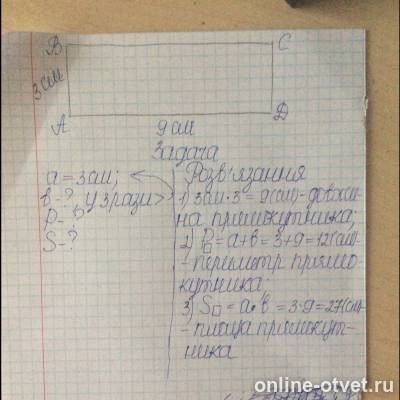 B C
3 см
A D
9 см
Задача
a = 3 см;
Розв'язання
b - ?, у 3 рази >
1) 3 см · 3 = 9 (см) - довжи-
P - ?
на прямокутника;
S - ?
2) P□ = a + b = 3 + 9 = 12 (см) -
- периметр прямо-
кутника;
3) S□ = a · b = 3 · 9 = 27 (см) -
- площа прямокут-
ника
online-otvet.ru